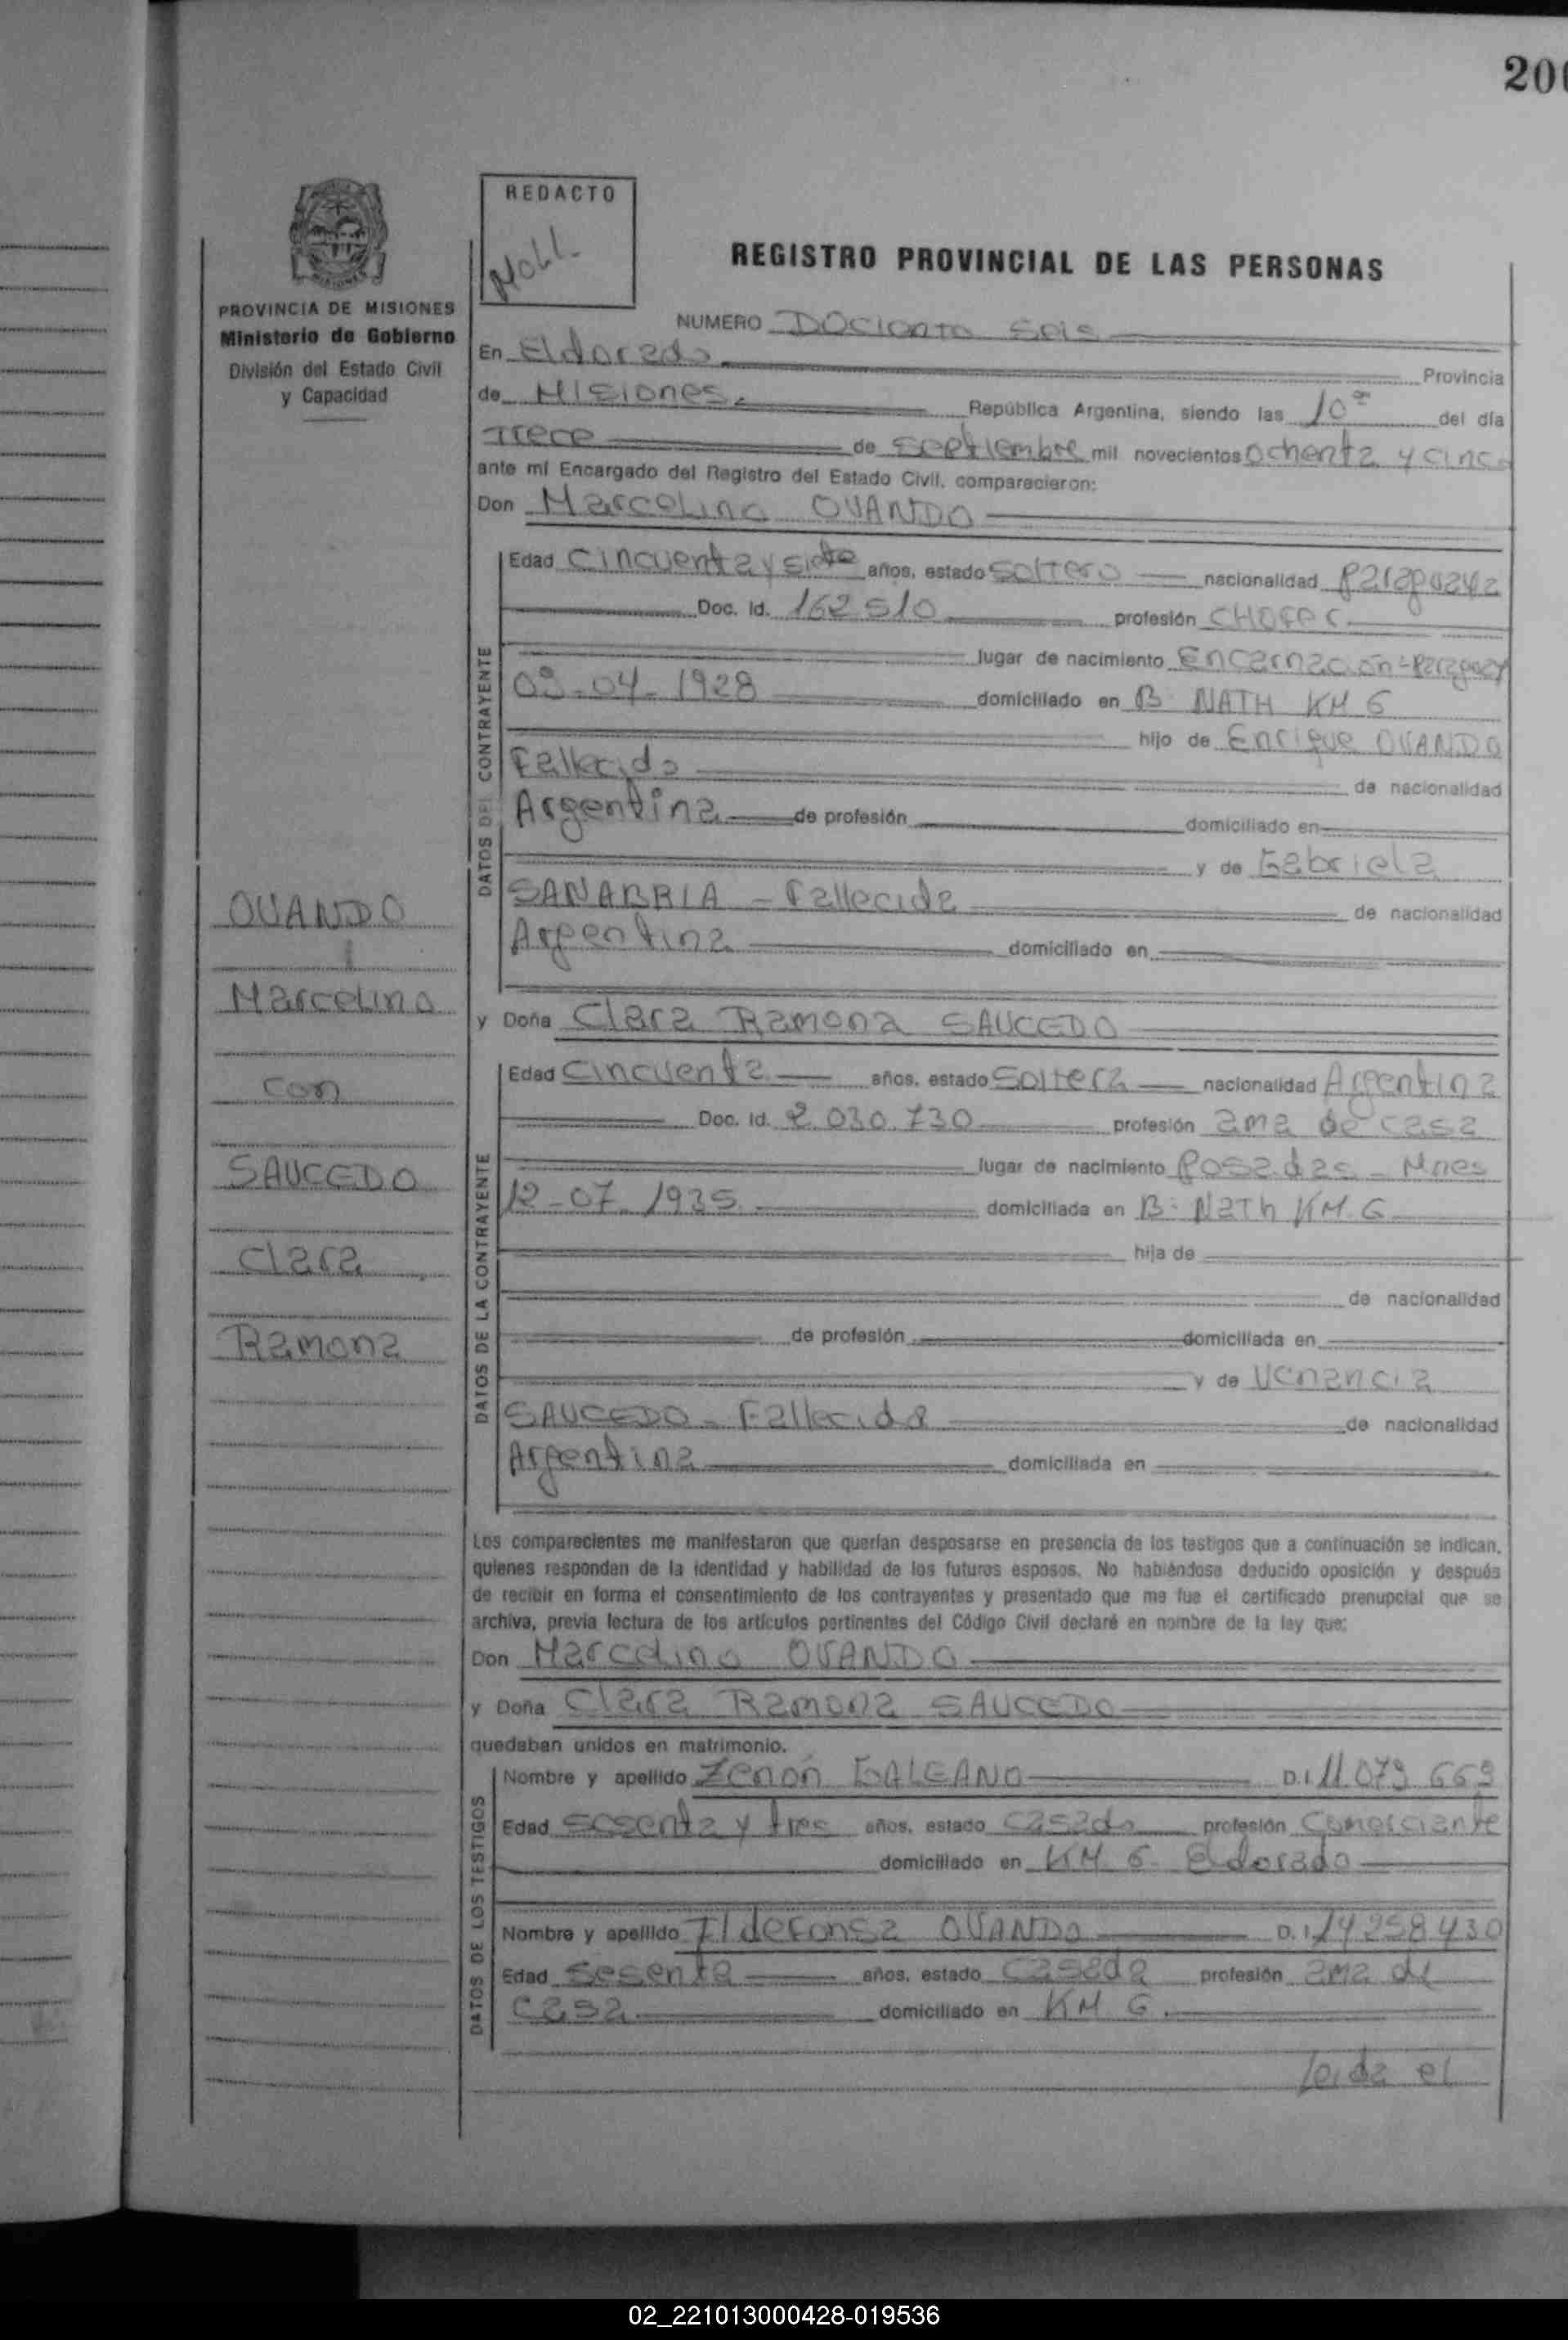 200
REDACTO
Moll
REGISTRO PROVINCIAL DE LAS PERSONAS
PROVINCIA DE MISIONES
Ministerio de Gobierno
División del Estado Civil
y Capacidad
NUMERO Dociento Seis
En Eldorado Provincia
de Misiones. República Argentina, siendo las 10ª del día
Trece de Septiembre mil novecientos ochenta y cinco
ante mí Encargado del Registro del Estado Civil, comparecieron:
Don Marcelino OVANDO
DATOS DEL CONTRAYENTE
Edad Cincuenta y siete años, estado Soltero nacionalidad Paraguaya
Doc. Id. 162510 profesión CHOFER
lugar de nacimiento Encarnación-Paraguay
09-04-1928 domiciliado en B NATH KM 6
hijo de Enrique OVANDO
Fallecido de nacionalidad
Argentina de profesión domiciliado en
y de Gabriela
SANABRIA - Fallecida de nacionalidad
Argentina domiciliado en
OVANDO
Marcelino
con
SAUCEDO
Clara
Ramona
y Doña Clara Ramona SAUCEDO
DATOS DE LA CONTRAYENTE
Edad Cincuenta años, estado Soltera nacionalidad Argentina
Doc. Id. 2.030.730 profesión ama de casa
lugar de nacimiento Posadas - Mnes
12-07-1935 domiciliada en B. Nath KM 6
hija de
de nacionalidad
de profesión domiciliada en
y de Venancia
SAUCEDO - Fallecida de nacionalidad
Argentina domiciliada en
Los comparecientes me manifestaron que querían desposarse en presencia de los testigos que a continuación se indican,
quienes responden de la identidad y habilidad de los futuros esposos. No habiéndose deducido oposición y después
de recibir en forma el consentimiento de los contrayentes y presentado que me fue el certificado prenupcial que se
archiva, previa lectura de los artículos pertinentes del Código Civil declaré en nombre de la ley que:
Don Marcelino OVANDO
y Doña Clara Ramona SAUCEDO
quedaban unidos en matrimonio.
DATOS DE LOS TESTIGOS
Nombre y apellido Zenón GALEANO D.I. 11.079.669
Edad sesenta y tres años, estado Casado profesión Comerciante
domiciliado en KM 6 Eldorado
Nombre y apellido Ildefonsa OVANDO D.I. 14258430
Edad Sesenta años, estado Casada profesión ama de
casa domiciliado en KM 6.
leida el
02_221013000428-019536